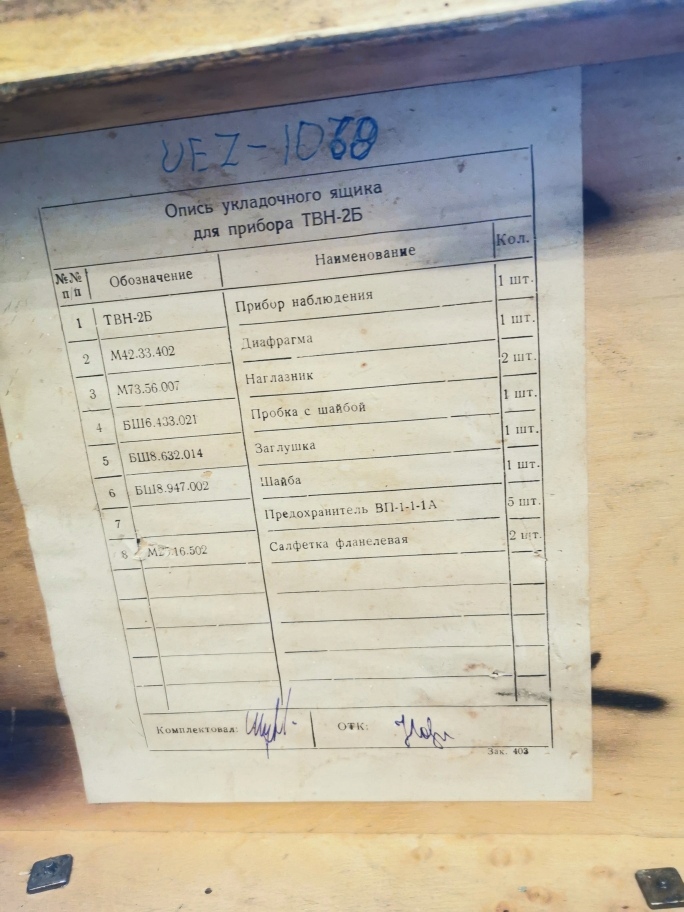 UEZ-1068
Опись укладочного ящика
для прибора ТВН-2Б
№№ п/п Обозначение Наименование Кол.
1 ТВН-2Б Прибор наблюдения 1 шт.
2 М42.33.402 Диафрагма 1 шт.
3 М73.56.007 Наглазник 2 шт.
4 БШ6.433.021 Пробка с шайбой 1 шт.
5 БШ8.632.014 Заглушка 1 шт.
6 БШ8.947.002 Шайба 1 шт.
7 Предохранитель ВП-1-1-1А 5 шт.
8 Салфетка фланелевая 2 шт.
Комплектовал: ОТК:
Зак. 403